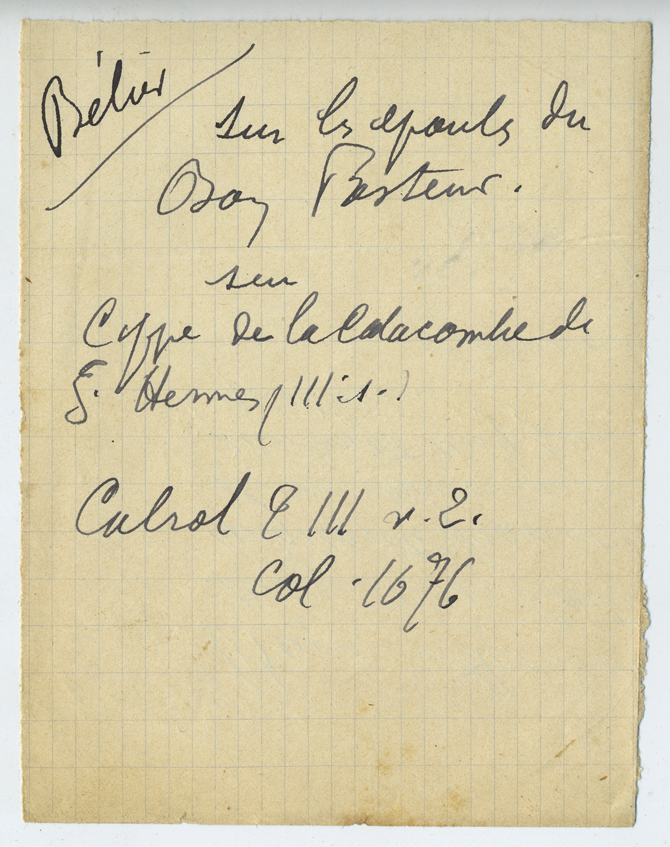 Bélier
sur les epaules du
Bon Pasteur.
sur
Cippe de la Catacombe de
S. Hermes (III s.)
Cabrol T III v. 2.
col. 1676